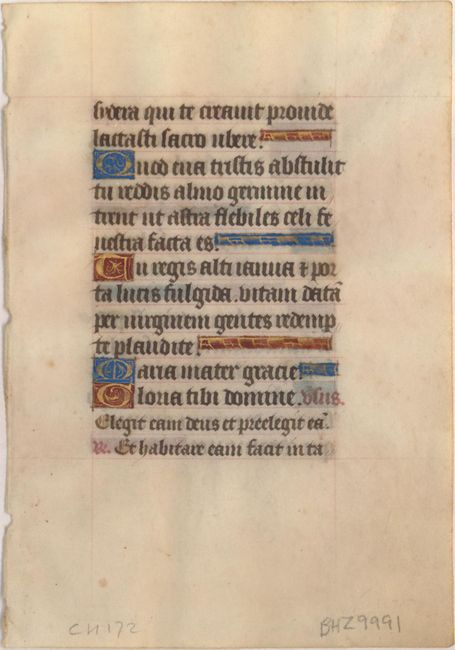 sydera qui te creauit prouide
lactasti sacro ubere.
Quod eua tristis abstulit
tu reddis almo germine in
trent ut astra flebiles celi fe
nestra facta es.
Tu regis alti ianua et por
ta lucis fulgida. vitam datã
per uirginem gentes redemp
te plaudite.
Maria mater gracie.
Gloria tibi domine. v̄sus.
Elegit eam deus et preelegit eã.
R. Et habitare eam facit in ta
CH172
BHZ9991